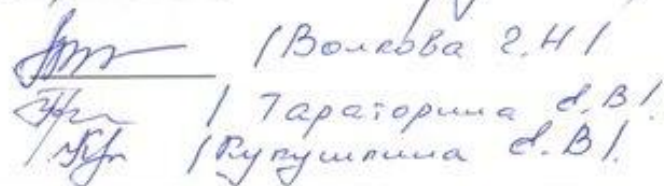 /Волкова Г.Н/
/ Тараторина Е.В/.
/Кукушкина Е.В/.